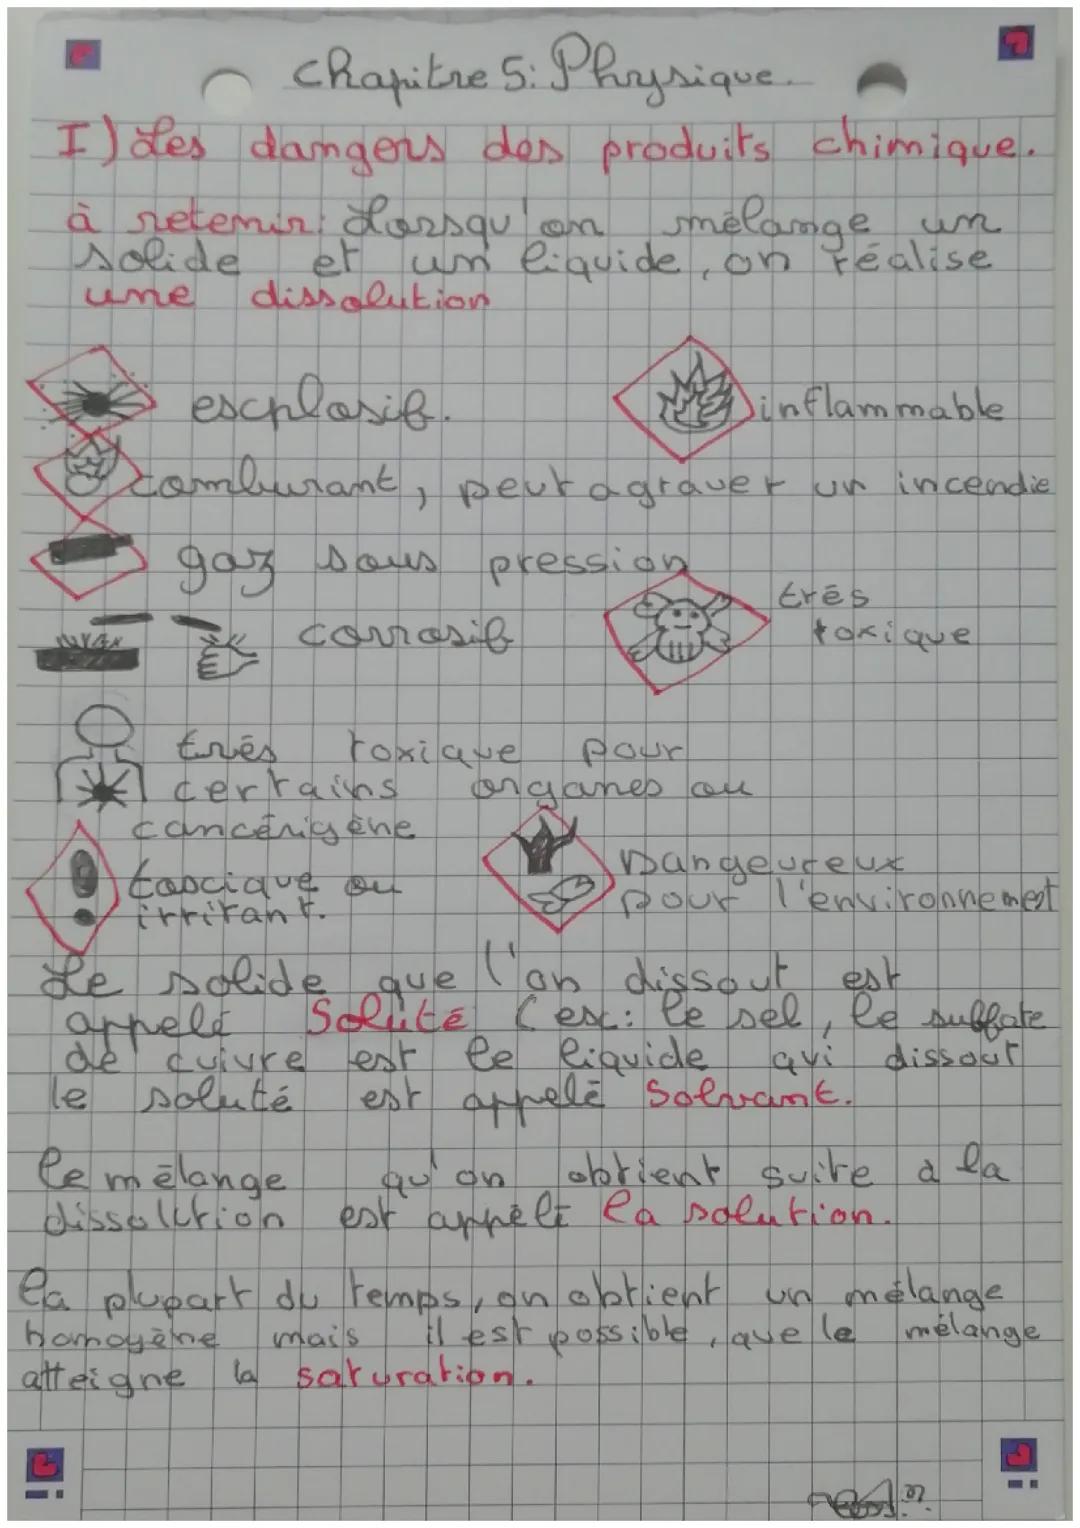 Chapitre 5: Physique.
I) Les dangers des produits chimique.
à retenir: Lorsqu'on mélange un
solide et un liquide, on réalise
une dissolution
explosif.
inflammable
comburant, peut agraver un incendie
gaz sous pression
corrosif
très
toxique
très toxique pour
certains organes ou
cancérigène
toxique ou
irritant.
Dangeureux
pour l'environnement
Le solide que l'on dissout est
appelé Soluté (ex: le sel, le sulfate
de cuivre est le liquide qui dissout
le soluté est appelé Solvant.
le mélange qu'on obtient suite à la
dissolution est appelé la solution.
la plupart du temps, on obtient un mélange
homogène mais il est possible, que le mélange
atteigne la saturation.